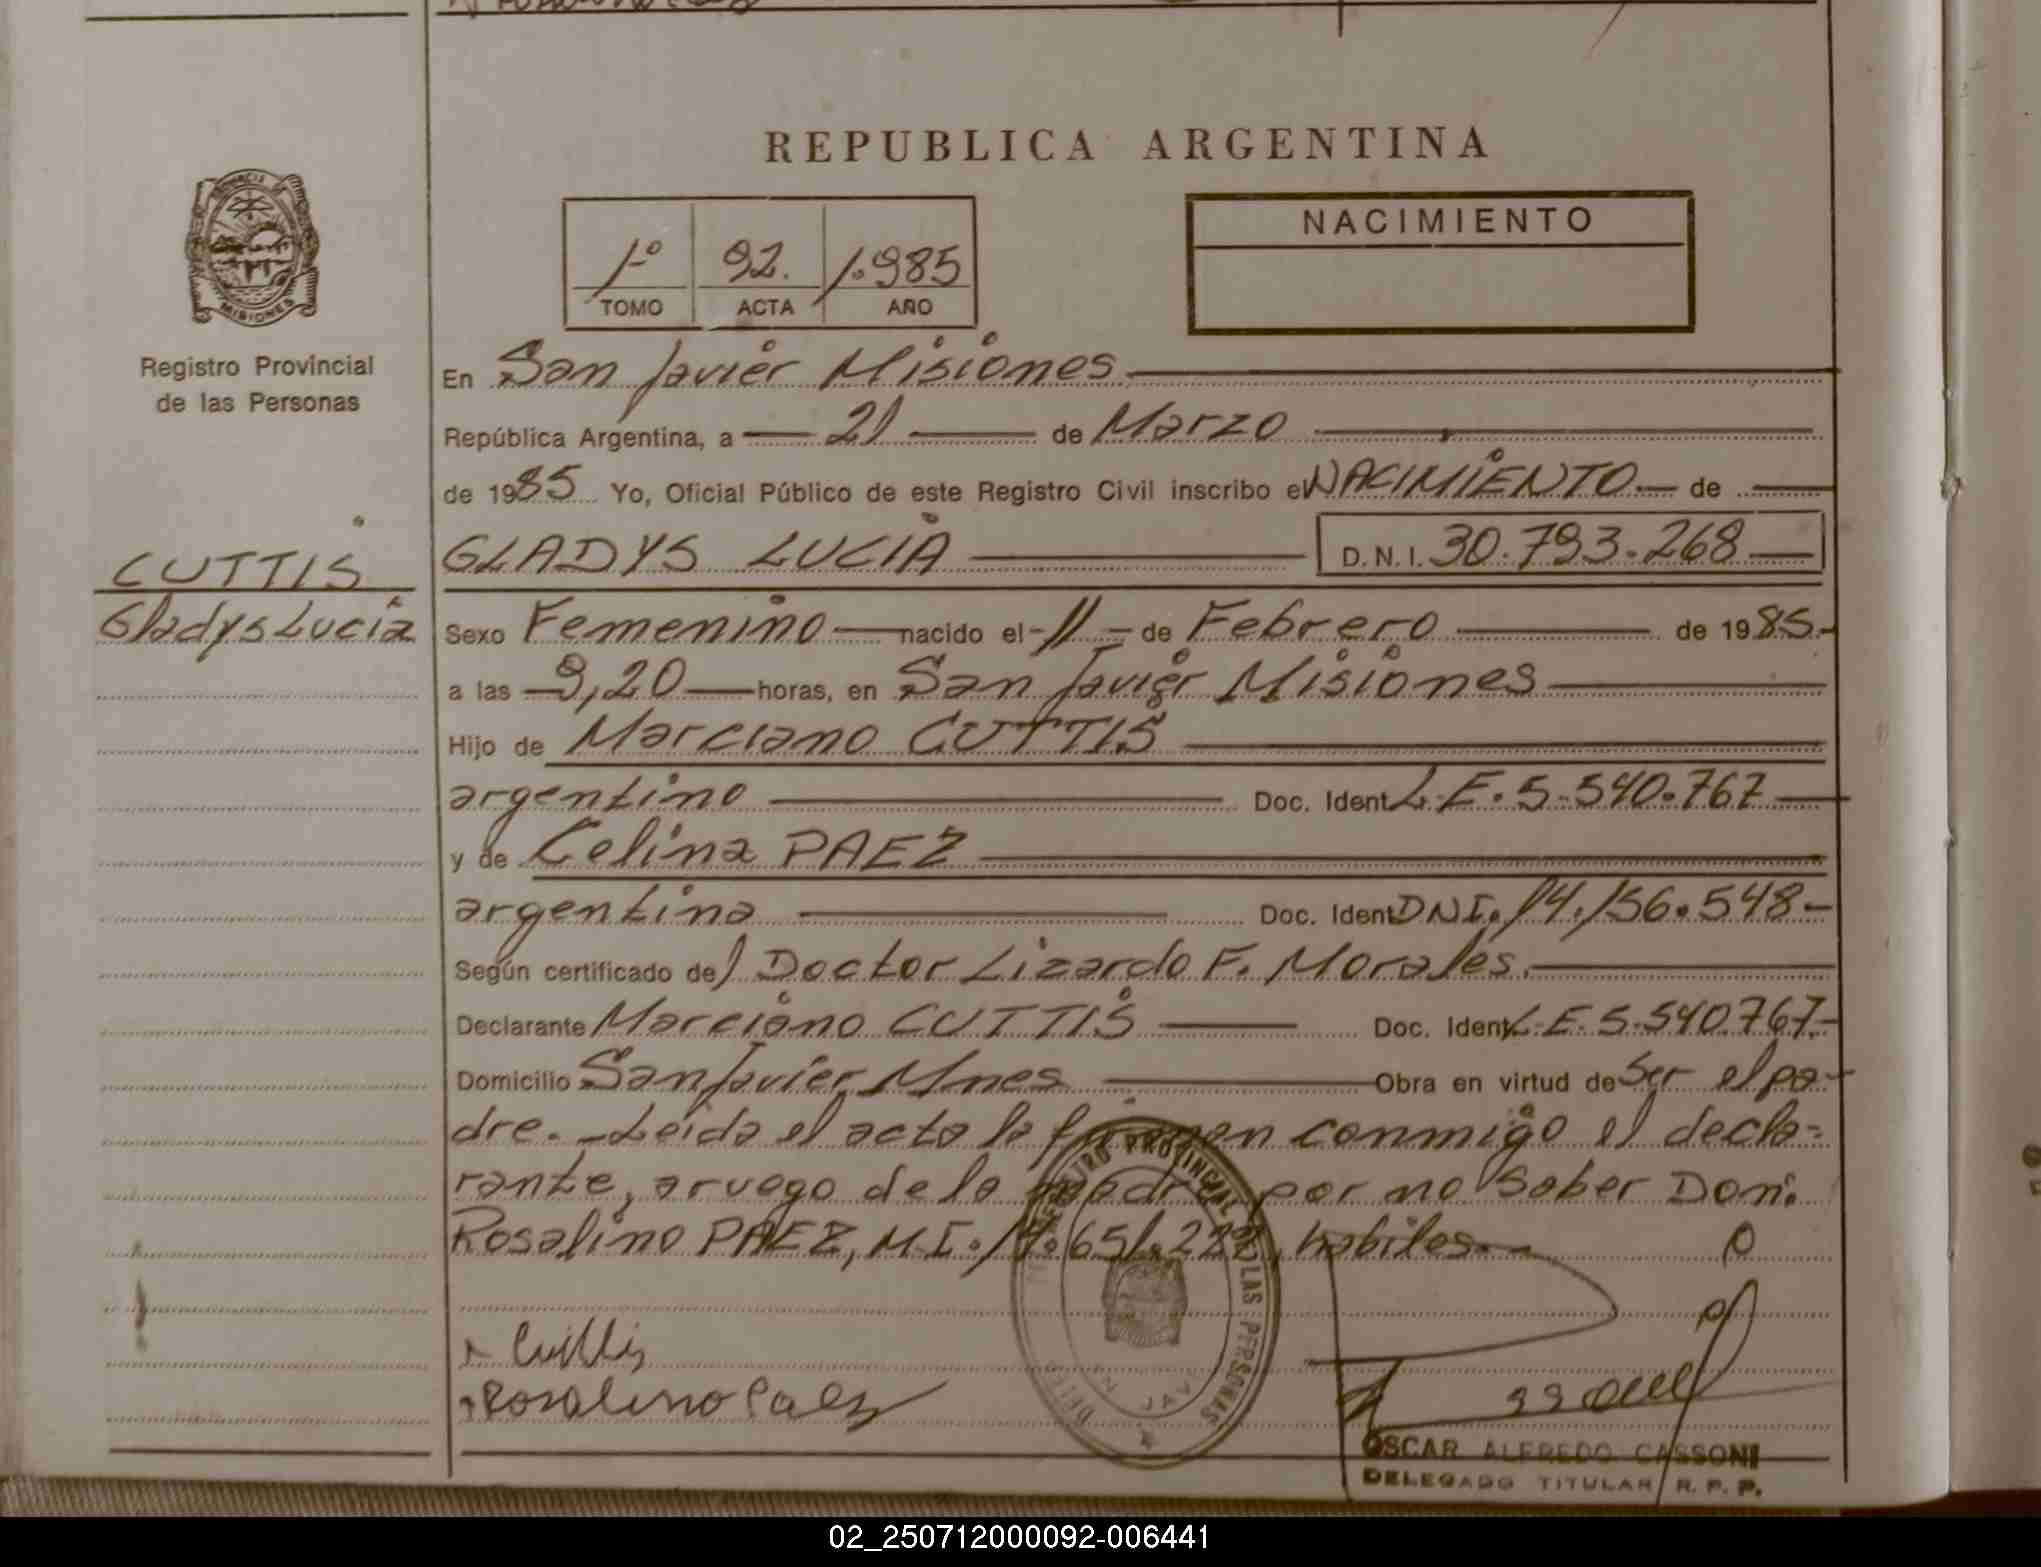 REPUBLICA ARGENTINA
PROVINCIA
MISIONES
Registro Provincial
de las Personas
1º 92. 1.985
TOMO ACTA AÑO
NACIMIENTO
En San Javier Misiones
República Argentina, a 21 de Marzo
de 1985 Yo, Oficial Público de este Registro Civil inscribo el NACIMIENTO de
CUTTIS
Gladys Lucia
GLADYS LUCIA D.N.I. 30.793.268
Sexo Femenino nacido el 11 de Febrero de 1985.
a las 9,20 horas, en San Javier Misiones
Hijo de Marciano CUTTIS
argentino Doc. Ident L.E. 5.540.767
y de Celina PAEZ
argentina Doc. Ident DNI. 14.156.548-
Según certificado del Doctor Lizardo F. Morales.
Declarante Marciano CUTTIS Doc. Ident L.E. 5.540.767-
Domicilio San Javier Mnes Obra en virtud de Ser el pa-
dre. - Leida el acta la firman conmigo el decla-
rante, a ruego de la madre por no Saber Don:
Rosalino PAEZ, M.I. habiles
Cuttis
Rosalino Paez
REGISTRO PROVINCIAL DE LAS PERSONAS
OSCAR ALFREDO CASSONI
DELEGADO TITULAR R. P. P.
02_250712000092-006441